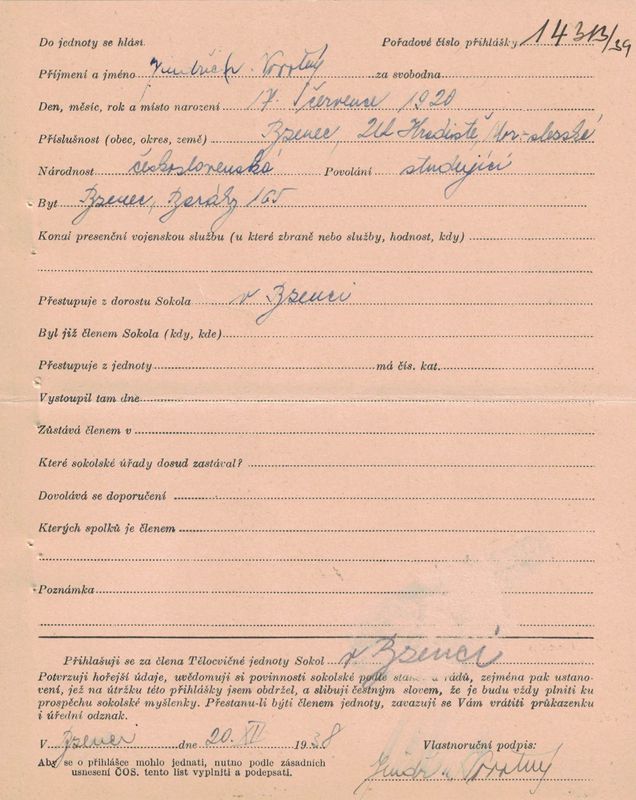 Do jednoty se hlásí. Pořadové číslo přihlášky 143B/39
Příjmení a jméno Jindřich Novotný za svobodna
Den, měsíc, rok a místo narození 17. července 1920
Příslušnost (obec, okres, země) Bzenec, Uh. Hradiště, Mor-slezská
Národnost československá Povolání studující
Byt Bzenec, 165
Konal presenční vojenskou službu (u které zbraně nebo služby, hodnost, kdy)
Přestupuje z dorostu Sokola v Bzenci
Byl již členem Sokola (kdy, kde)
Přestupuje z jednoty má čís. kat.
Vystoupil tam dne
Zůstává členem v
Které sokolské úřady dosud zastával?
Dovolává se doporučení
Kterých spolků je členem
Poznámka
Přihlašuji se za člena Tělocvičné jednoty Sokol v Bzenci
Potvrzuji hořejší údaje, uvědomuji si povinnosti sokolské podle stanov a řádů, zejména pak ustano-
vení, jež na útržku této přihlášky jsem obdržel, a slibuji čestným slovem, že je budu vždy plniti ku
prospěchu sokolské myšlenky. Přestanu-li býti členem jednoty, zavazuji se Vám vrátiti průkazenku
i úřední odznak.
V Bzenci dne 20. XII 1938 Vlastnoruční podpis:
Aby se o přihlášce mohlo jednati, nutno podle zásadních
usnesení ČOS. tento list vyplniti a podepsati. Jindřich Novotný